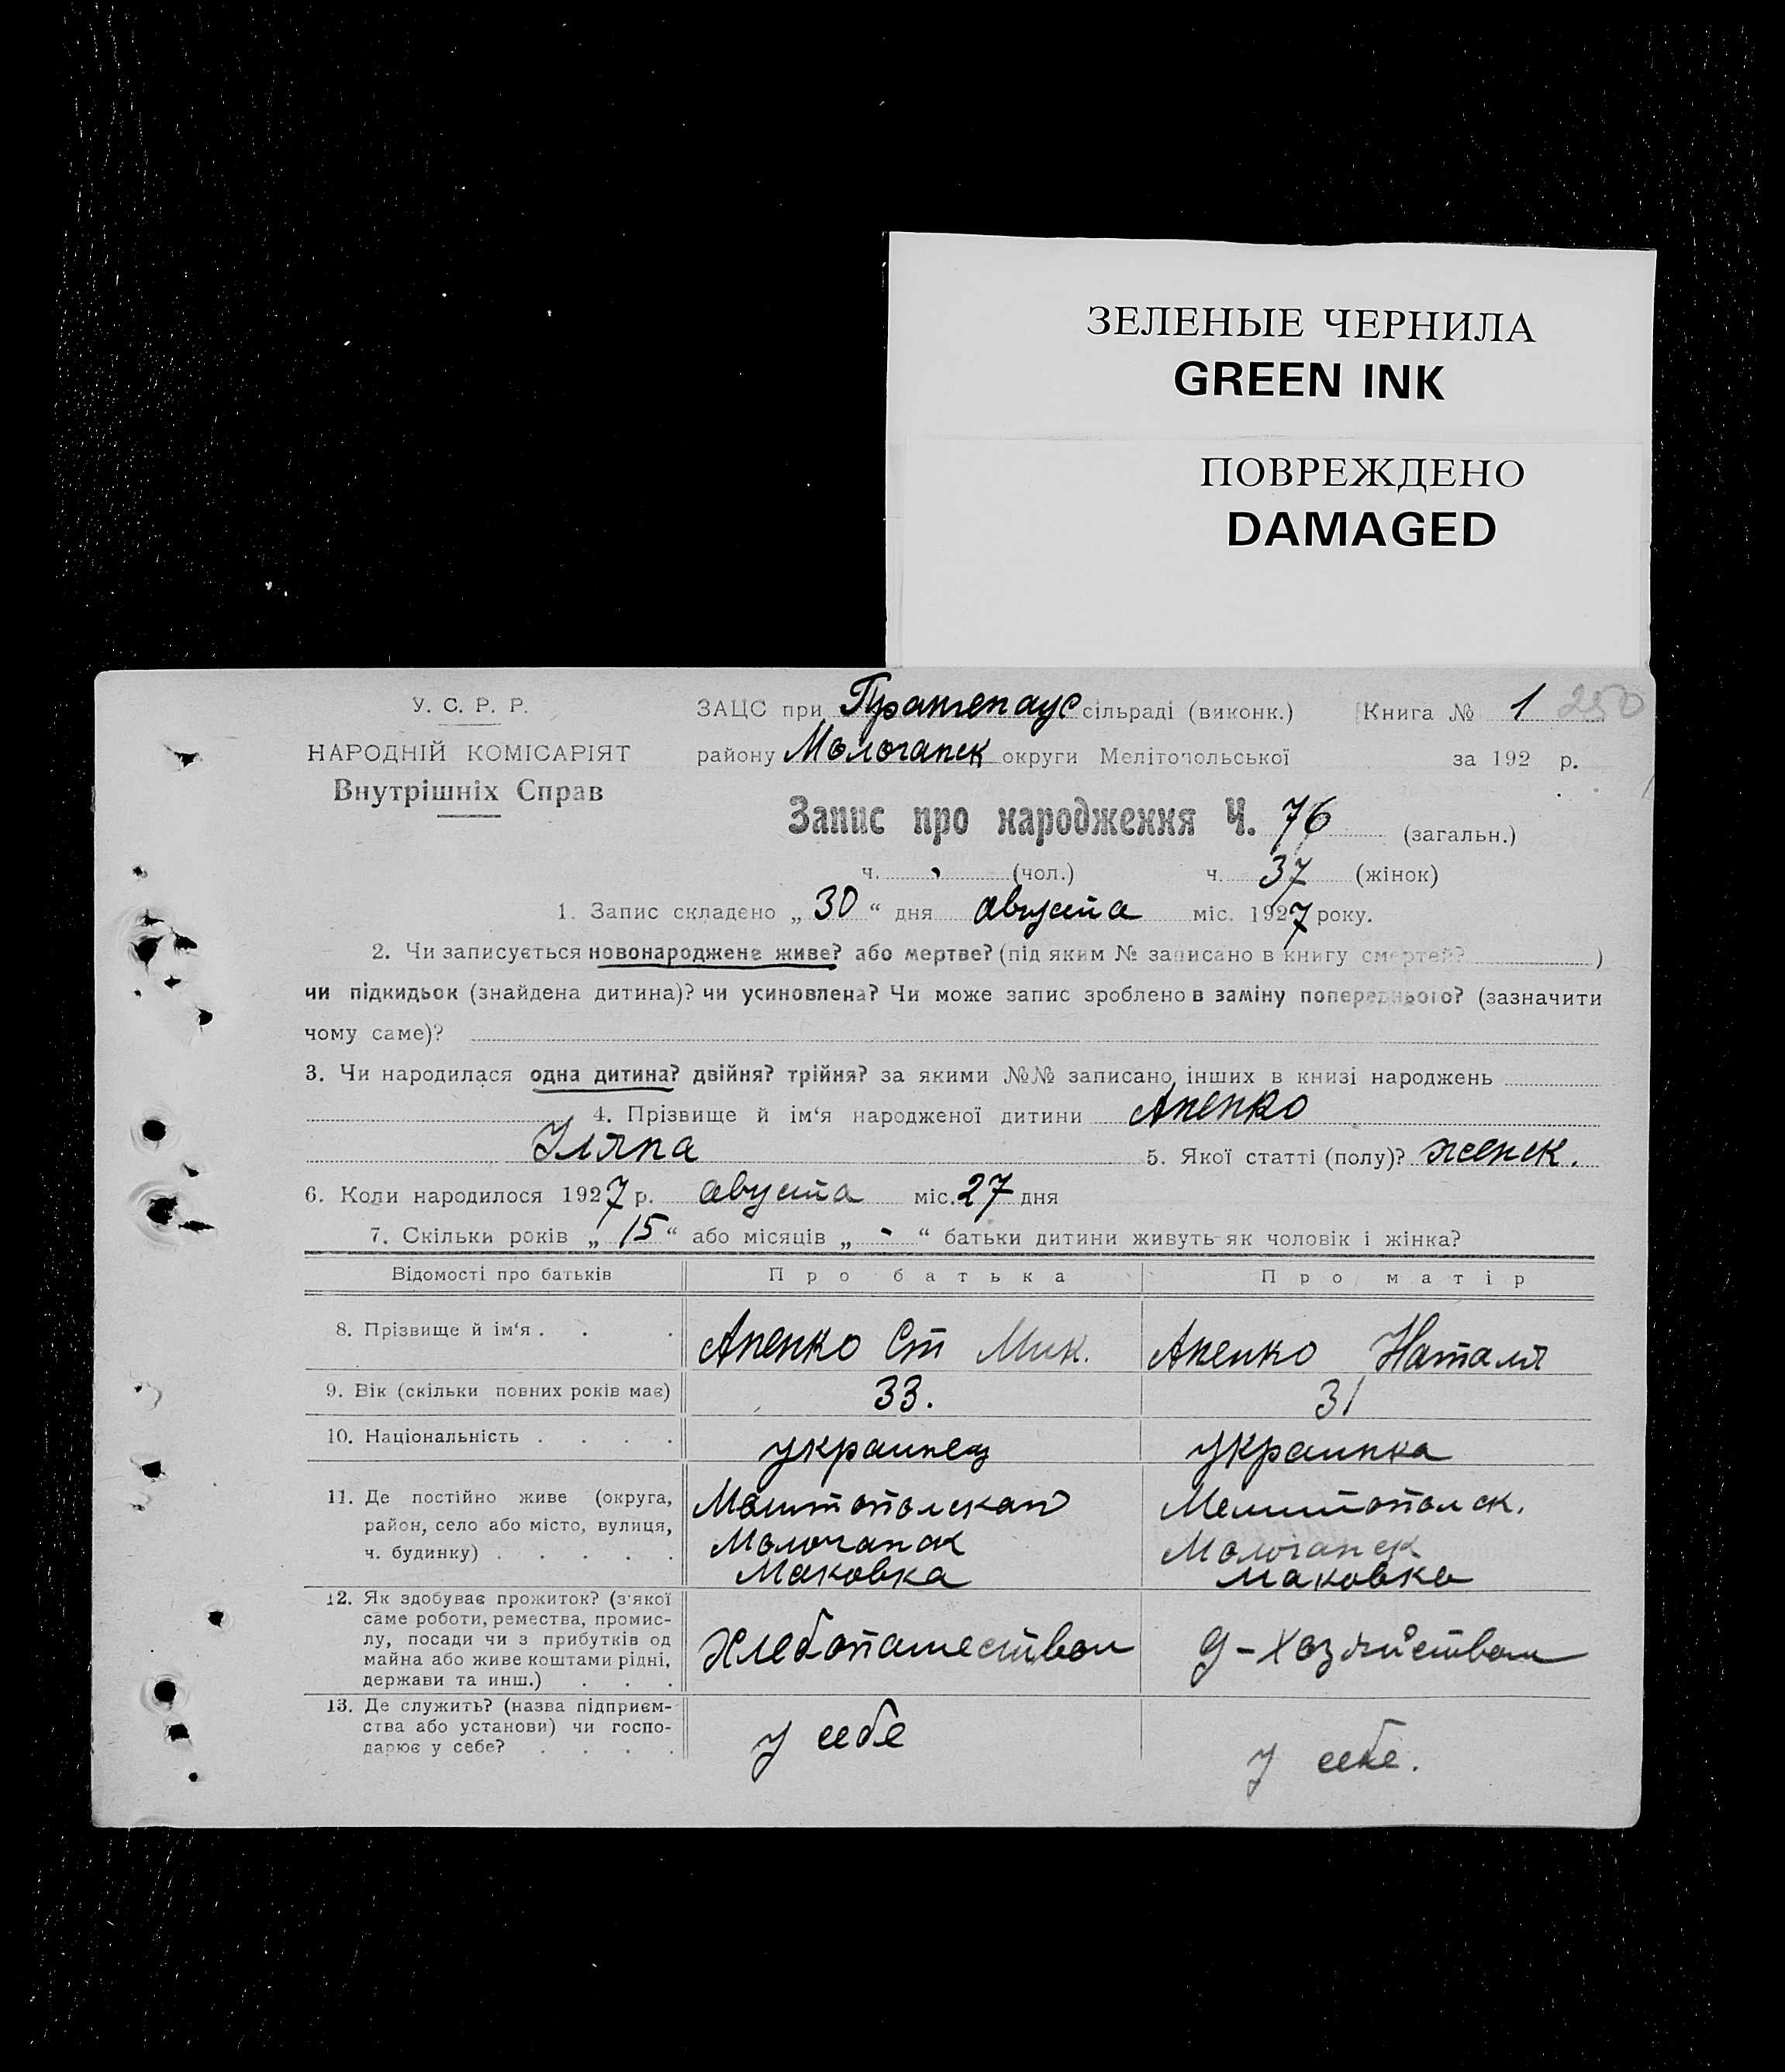 ЗЕЛЕНЫЕ ЧЕРНИЛА
GREEN INK
ПОВРЕЖДЕНО
DAMAGED
У. С. Р. Р.
НАРОДНІЙ КОМІСАРІЯТ
Внутрішніх Справ
ЗАЦС при сільраді (виконк.) Книга № 1 250
району Молочанск округи Мелітопольської за 192 р.
Запис про народження Ч. 76 (загальн.)
ч. (чол.) ч. 37 (жінок)
1. Запис складено „ 30 “ дня августа міс. 1927 року.
2. Чи записується новонароджене живе? або мертве? (під яким № записано в книгу смертей? )
чи підкидьок (знайдена дитина)? чи усиновлена? Чи може запис зроблено в заміну попереднього? (зазначити
чому саме)?
3. Чи народилася одна дитина? двійня? трійня? за якими №№ записано інших в книзі народжень
4. Прізвище й ім‘я народженої дитини Апенко
5. Якої статті (полу)? женск.
6. Коли народилося 1927 р. августа міс. 27 дня
7. Скільки років „ 15 “ або місяців „ - “ батьки дитини живуть як чоловік і жінка?
Відомості про батьків Про батька Про матір
8. Прізвище й ім‘я . . . Апенко Ст Мик. Апенко Наталя
9. Вік (скільки повних років має) 33. 31
10. Національність . . . . украинец украинка
11. Де постійно живе (округа,
район, село або місто, вулиця,
ч. будинку) . . . . .
Мелитополск.
Молочанск Молочанск
Маковка Маковка
12. Як здобуває прожиток? (з'якої
саме роботи, ремества, промис-
лу, посади чи з прибутків од
майна або живе коштами рідні,
держави та инш.) . . .
Хлебопашеством д-хозяйством
13. Де служить? (назва підприєм-
ства або установи) чи госпо-
дарює у себе? . . . .
у себе у себе.